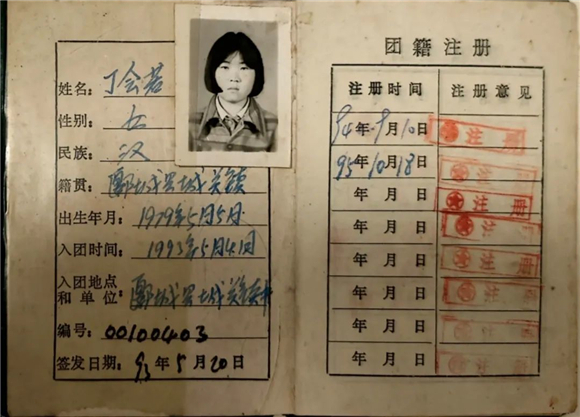 姓名：丁会营
性别：女
民族：汉
籍贯：郓城县城关镇
出生年月：1979年5月5日
入团时间：1993年5月4日
入团地点
和单位：郓城县城关镇
编号：00100403
签发日期：93年5月20日
团籍注册
注册时间 注册意见
94年9月10日 注册
95年10月18日 注册
年 月 日 注册
年 月 日 注册
年 月 日 注册
年 月 日 注册
年 月 日 注册
年 月 日 注册